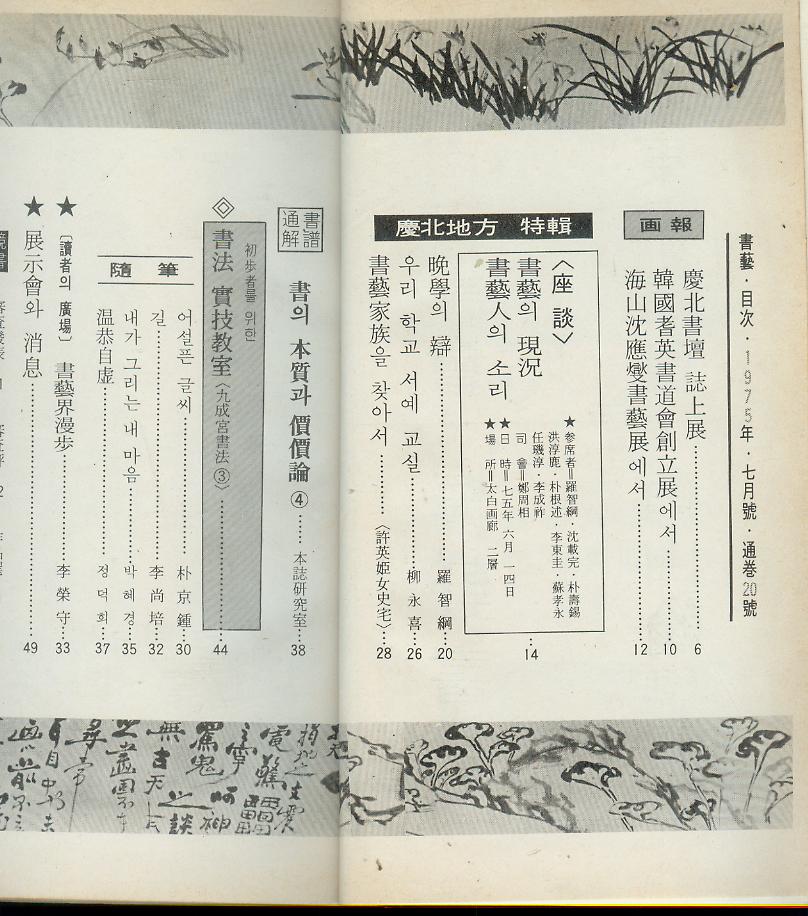 書藝·目次·1975年·七月號·通巻20號
画報
慶北書壇 誌上展 6
韓國耆英書道會創立展에서 10
海山沈應燮書藝展에서 12
慶北地方 特輯
〈座談〉
書藝의 現況
書藝人의 소리 14
★参席者=羅智綱·沈載完·朴壽錫
洪淳鹿·朴根述·李東圭·蘇孝永
任璣淳·李成祚
司 會=鄭周相
★日 時=七五年 六月 一四日
★場 所=太白画廊 二層
晩學의 辯 羅智綱 20
우리 학교 서예 교실 柳永喜 26
書藝家族을 찾아서 〈許英姫女史宅〉 28
書譜通解
書의 本質과 價價論 ④ 本誌研究室 38
◇
初歩者를 위한
書法 實技教室〈九成宮書法 ③〉 44
隨筆
어설픈 글씨 朴京鍾 30
길 李尚培 32
내가 그리는 내 마음 박혜경 35
温恭自虚 정덕희 37
★〔讀者의 廣場〕 書藝界漫歩 李榮守 33
★展示會와 消息 49